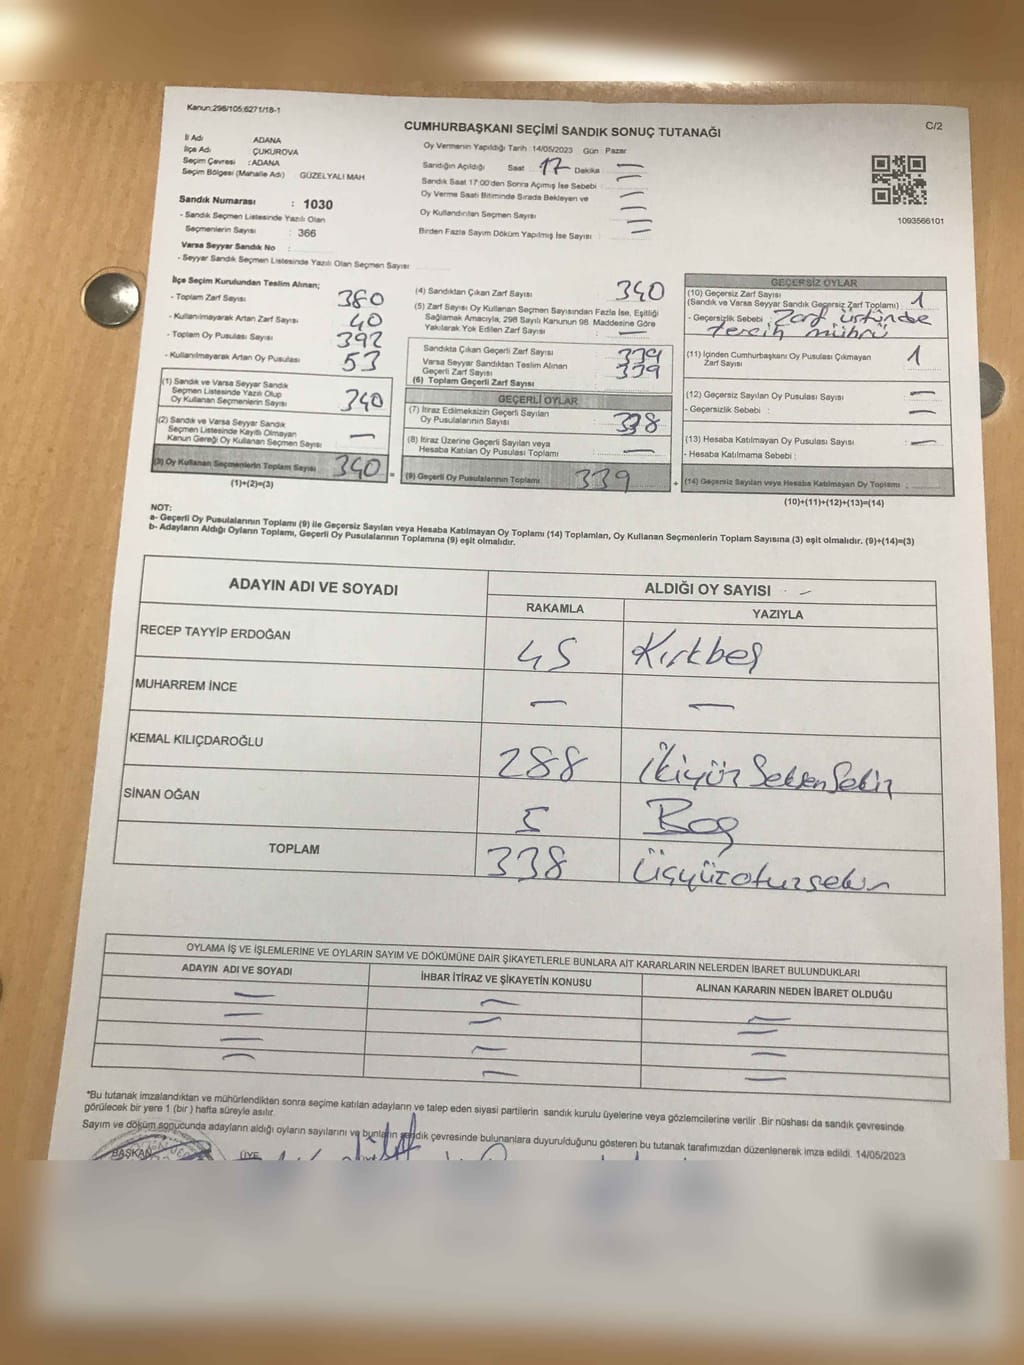 Kanun;298/105;6271/18-1
C/2
CUMHURBAŞKANI SEÇİMİ SANDIK SONUÇ TUTANAĞI
İl Adı ADANA
İlçe Adı ÇUKUROVA
Seçim Çevresi : ADANA
Seçim Bölgesi (Mahalle Adı) GÜZELYALI MAH
Sandık Numarası : 1030
- Sandık Seçmen Listesinde Yazılı Olan
Seçmenlerin Sayısı : 366
Varsa Seyyar Sandık No :
- Seyyar Sandık Seçmen Listesinde Yazılı Olan Seçmen Sayısı
Oy Vermenin Yapıldığı Tarih : 14/05/2023 Gün : Pazar
Sandığın Açıldığı Saat 17 Dakika : —
Sandık Saat 17:00'den Sonra Açımış İse Sebebi : —
Oy Verme Saati Bitiminde Sırada Bekleyen ve —
Oy Kullandırılan Seçmen Sayısı : —
Birden Fazla Sayım Döküm Yapılmış İse Sayısı : —
1093566101
İlçe Seçim Kurulundan Teslim Alınan;
- Toplam Zarf Sayısı 380
- Kullanılmayarak Artan Zarf Sayısı 40
- Toplam Oy Pusulası Sayısı 392
- Kullanılmayarak Artan Oy Pusulası 53
(1) Sandık ve Varsa Seyyar Sandık
Seçmen Listesinde Yazılı Olup
Oy Kullanan Seçmenlerin Sayısı 340
(2) Sandık ve Varsa Seyyar Sandık
Seçmen Listesinde Kayıtlı Olmayan
Kanun Gereği Oy Kullanan Seçmen Sayısı —
(3) Oy Kullanan Seçmenlerin Toplam Sayısı 340
(1)+(2)=(3)
(4) Sandıktan Çıkan Zarf Sayısı 340
(5) Zarf Sayısı Oy Kullanan Seçmen Sayısından Fazla İse, Eşitliği
Sağlamak Amacıyla, 298 Sayılı Kanunun 98. Maddesine Göre
Yakılarak Yok Edilen Zarf Sayısı —
Sandıkta Çıkan Geçerli Zarf Sayısı 339
Varsa Seyyar Sandıktan Teslim Alınan
Geçerli Zarf Sayısı
(6) Toplam Geçerli Zarf Sayısı 339
GEÇERLİ OYLAR
(7) İtiraz Edilmeksizin Geçerli Sayılan
Oy Pusulalarının Sayısı 338
(8) İtiraz Üzerine Geçerli Sayılan veya
Hesaba Katılan Oy Pusulası Toplamı —
= (9) Geçerli Oy Pusulalarının Toplamı 339
GEÇERSİZ OYLAR
(10) Geçersiz Zarf Sayısı
(Sandık ve Varsa Seyyar Sandık Geçersiz Zarf Toplamı) : 1
- Geçersizlik Sebebi : Zarf üstünde
tercih mührü
(11) İçinden Cumhurbaşkanı Oy Pusulası Çıkmayan
Zarf Sayısı 1
(12) Geçersiz Sayılan Oy Pusulası Sayısı : —
- Geçersizlik Sebebi : —
(13) Hesaba Katılmayan Oy Pusulası Sayısı : —
- Hesaba Katılmama Sebebi :
+ (14) Geçersiz Sayılan veya Hesaba Katılmayan Oy Toplamı :
(10)+(11)+(12)+(13)=(14)
NOT:
a- Geçerli Oy Pusulalarının Toplamı (9) ile Geçersiz Sayılan veya Hesaba Katılmayan Oy Toplamı (14) Toplamları, Oy Kullanan Seçmenlerin Toplam Sayısına (3) eşit olmalıdır. (9)+(14)=(3)
b- Adayların Aldığı Oyların Toplamı, Geçerli Oy Pusulalarının Toplamına (9) eşit olmalıdır.
ADAYIN ADI VE SOYADI ALDIĞI OY SAYISI
RAKAMLA YAZIYLA
RECEP TAYYİP ERDOĞAN 45 Kırkbeş
MUHARREM İNCE — —
KEMAL KILIÇDAROĞLU 288 İkiyüz Seksen Sekiz
SİNAN OĞAN 5 Beş
TOPLAM 338 Üçyüzotuzsekiz
OYLAMA İŞ VE İŞLEMLERİNE VE OYLARIN SAYIM VE DÖKÜMÜNE DAİR ŞİKAYETLERLE BUNLARA AİT KARARLARIN NELERDEN İBARET BULUNDUKLARI
ADAYIN ADI VE SOYADI İHBAR İTİRAZ VE ŞİKAYETİN KONUSU ALINAN KARARIN NEDEN İBARET OLDUĞU
— — —
— — —
— — —
— — —
*Bu tutanak imzalandıktan ve mühürlendikten sonra seçime katılan adayların ve talep eden siyasi partilerin sandık kurulu üyelerine veya gözlemcilerine verilir .Bir nüshası da sandık çevresinde
görülecek bir yere 1 (bir ) hafta süreyle asılır.
Sayım ve döküm sonucunda adayların aldığı oyların sayılarını ve bunların sandık çevresinde bulunanlara duyurulduğunu gösteren bu tutanak tarafımızdan düzenlenerek imza edildi. 14/05/2023
BAŞKAN ÜYE